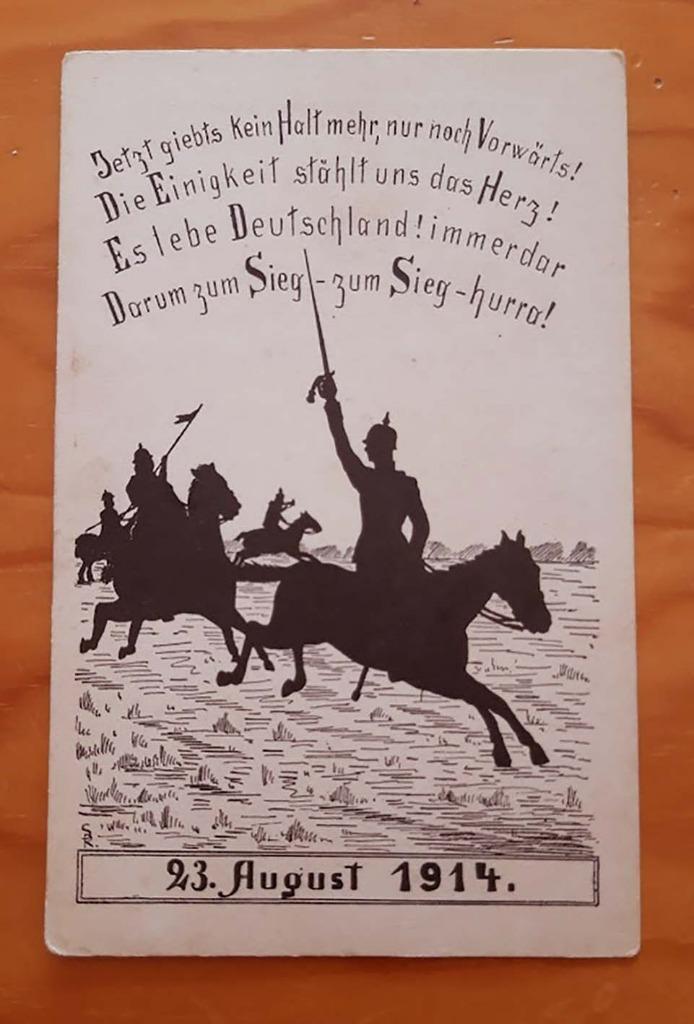 Jetzt giebts kein Halt mehr, nur noch Vorwärts!
Die Einigkeit stählt uns das Herz!
Es lebe Deutschland! immerdar
Darum zum Sieg - zum Sieg - hurra!
23. August 1914.